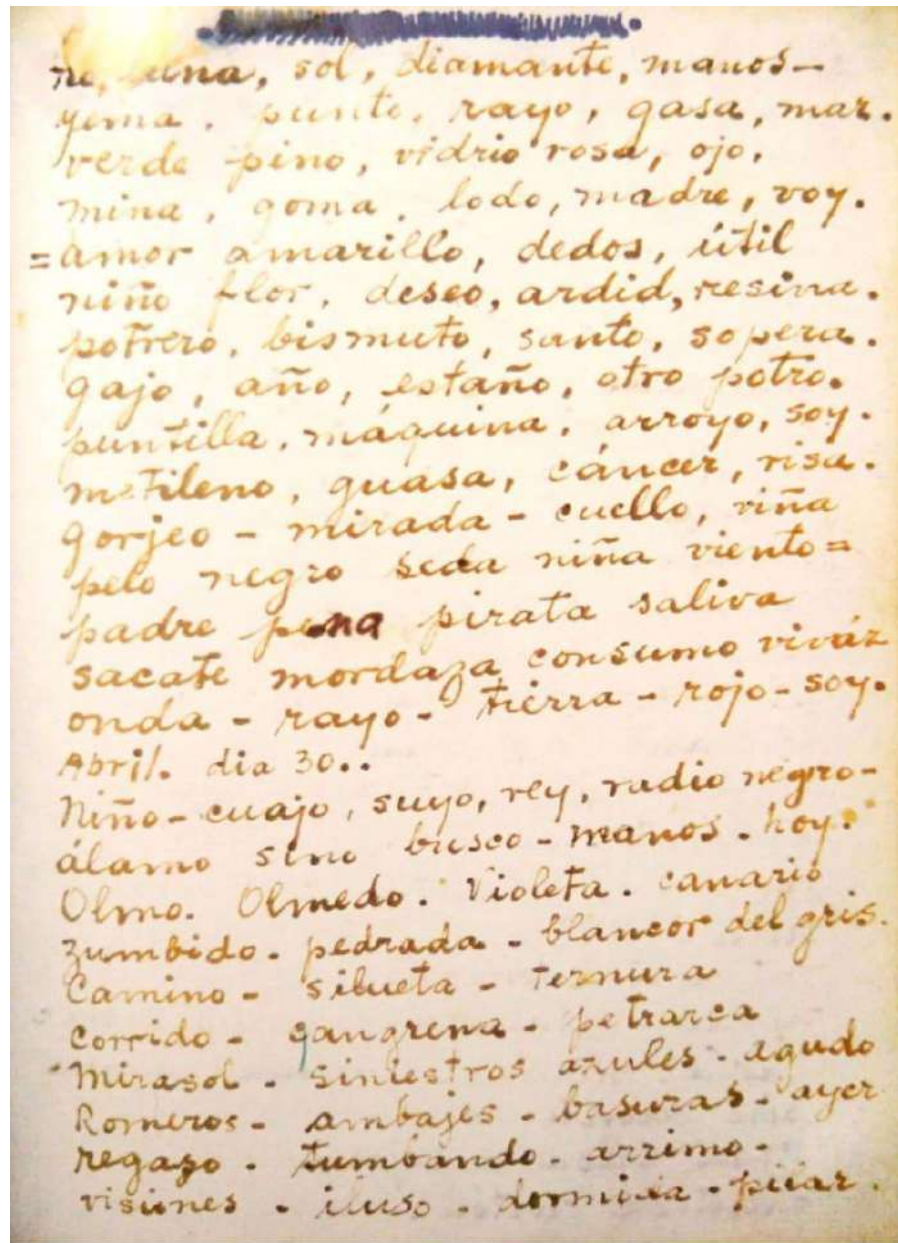 luna, sol, diamante, manos—
yema. punto, rayo, gasa, mar.
verde pino, vidrio rosa, ojo,
mina, goma, lodo, madre, voy.
=amor amarillo, dedos, útil
niño flor, deseo, ardid, resina.
potrero, bismuto, santo, sopera.
gajo, año, estaño, otro potro.
puntilla, máquina, arroyo, soy.
metileno, guasa, cáncer, risa.
gorjeo - mirada - cuello, viña
pelo negro seda niña viento=
padre pena pirata saliva
sacate mordaza consumo viváz
onda - rayo - tierra - rojo - soy.
Abril. dia 30..
Niño-cuajo, suyo, rey, radio negro-
álamo sino busco - manos. hoy.
Olmo. Olmedo. Violeta. canario
zumbido. pedrada - blancor del gris.
Camino - silueta - Ternura
Corrido - gangrena - petrarca
Mirasol - siniestros azules - agudo
Romeros - ambajes - basuras - ayer
regazo - tumbando - arrimo -
visiones - iluso - dormida - pilar.